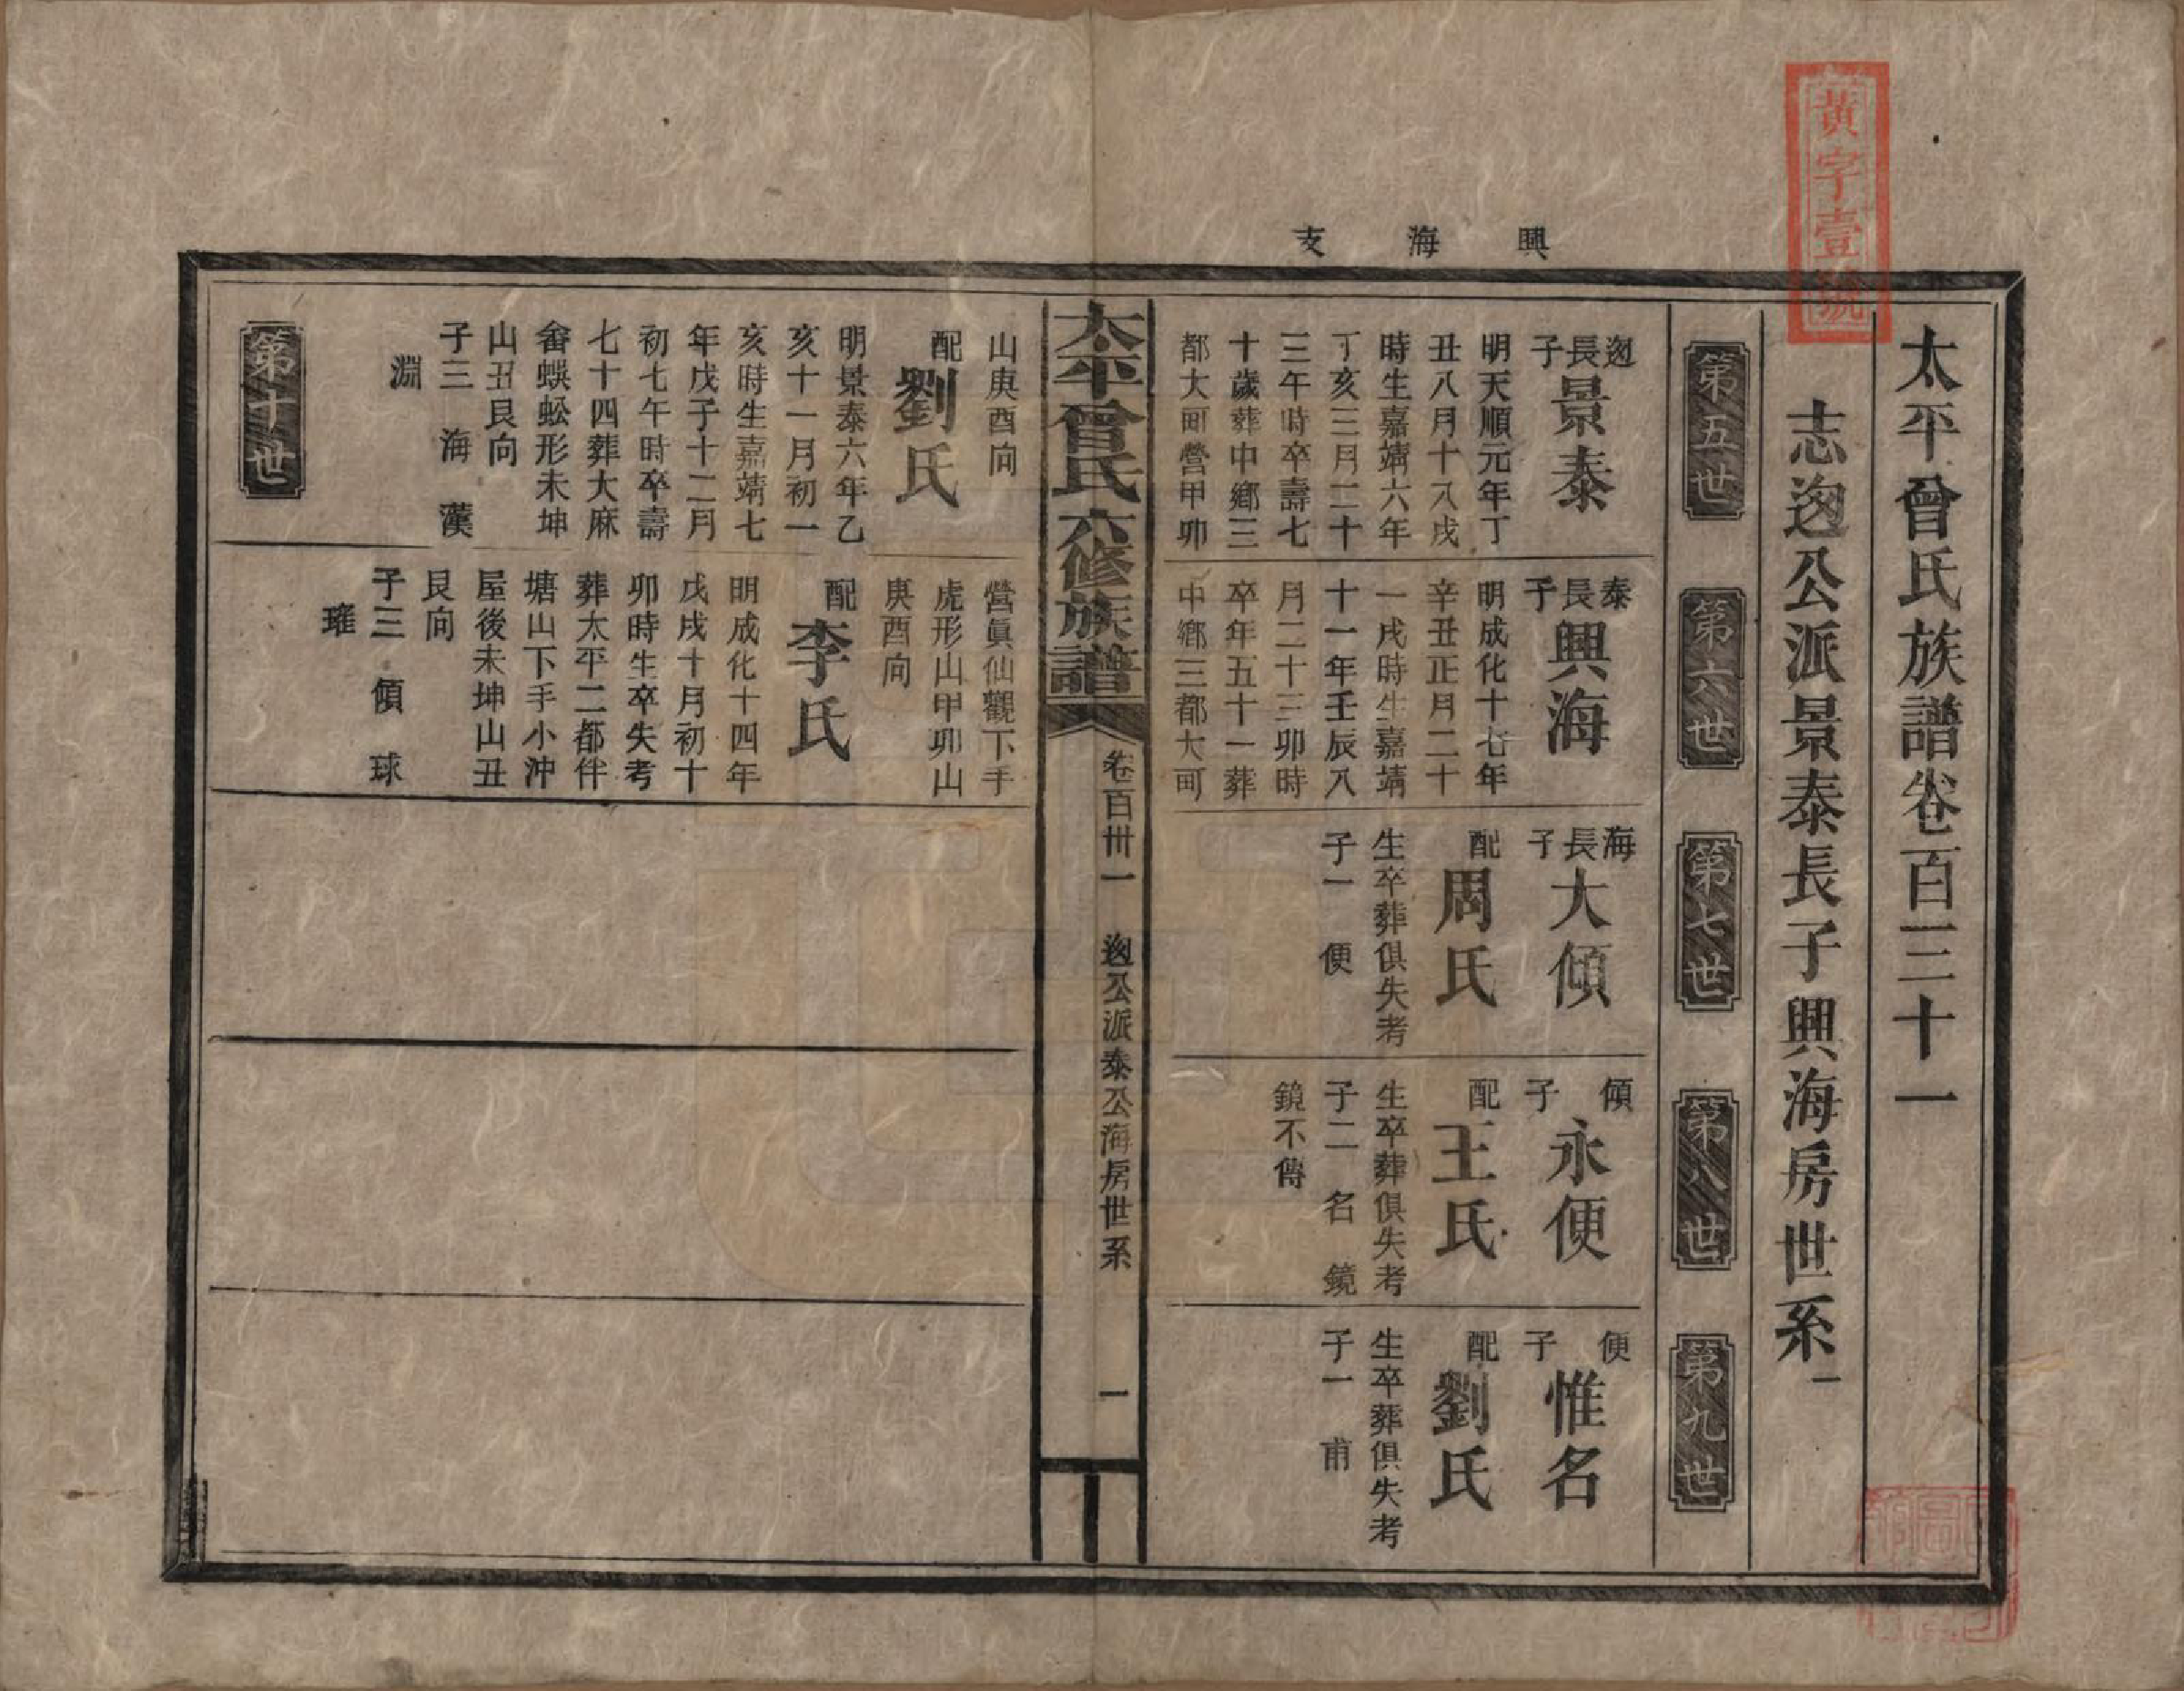 黃字壹號
興海支
太平曾氏族譜卷百三十一
志逈公派景泰長子興海房世系一
第五世
第六世
第七世
第八世
第九世
逈長子景泰
明天順元年丁
丑八月十八戌
時生嘉靖六年
丁亥三月二十
三午時卒壽七
十歲葬中鄉三
都大町營甲卯
山庚酉向
配劉氏
明景泰六年乙
亥十一月初一
亥時生嘉靖七
年戊子十二月
初七午時卒壽
七十四葬大麻
畬蜈蚣形未坤
山丑艮向
子三 海 漢
淵
泰長子興海
明成化十七年
辛丑正月二十
一戌時生嘉靖
十一年壬辰八
月二十三卯時
卒年五十一葬
中鄉三都大町
營眞仙觀下手
虎形山甲卯山
庚酉向
配李氏
明成化十四年
戊戌十月初十
卯時生卒失考
葬太平二都伴
塘山下手小沖
屋後未坤山丑
艮向
子三 傾 球
琟
海長子大傾
配周氏
生卒葬俱失考
子一 便
傾子永便
配王氏
生卒葬俱失考
子二 名 鏡
鏡不傳
便子惟名
配劉氏
生卒葬俱失考
子一 甫
太平曾氏六修族譜
卷百卅一 逈公派泰公海房世系 一
第十世